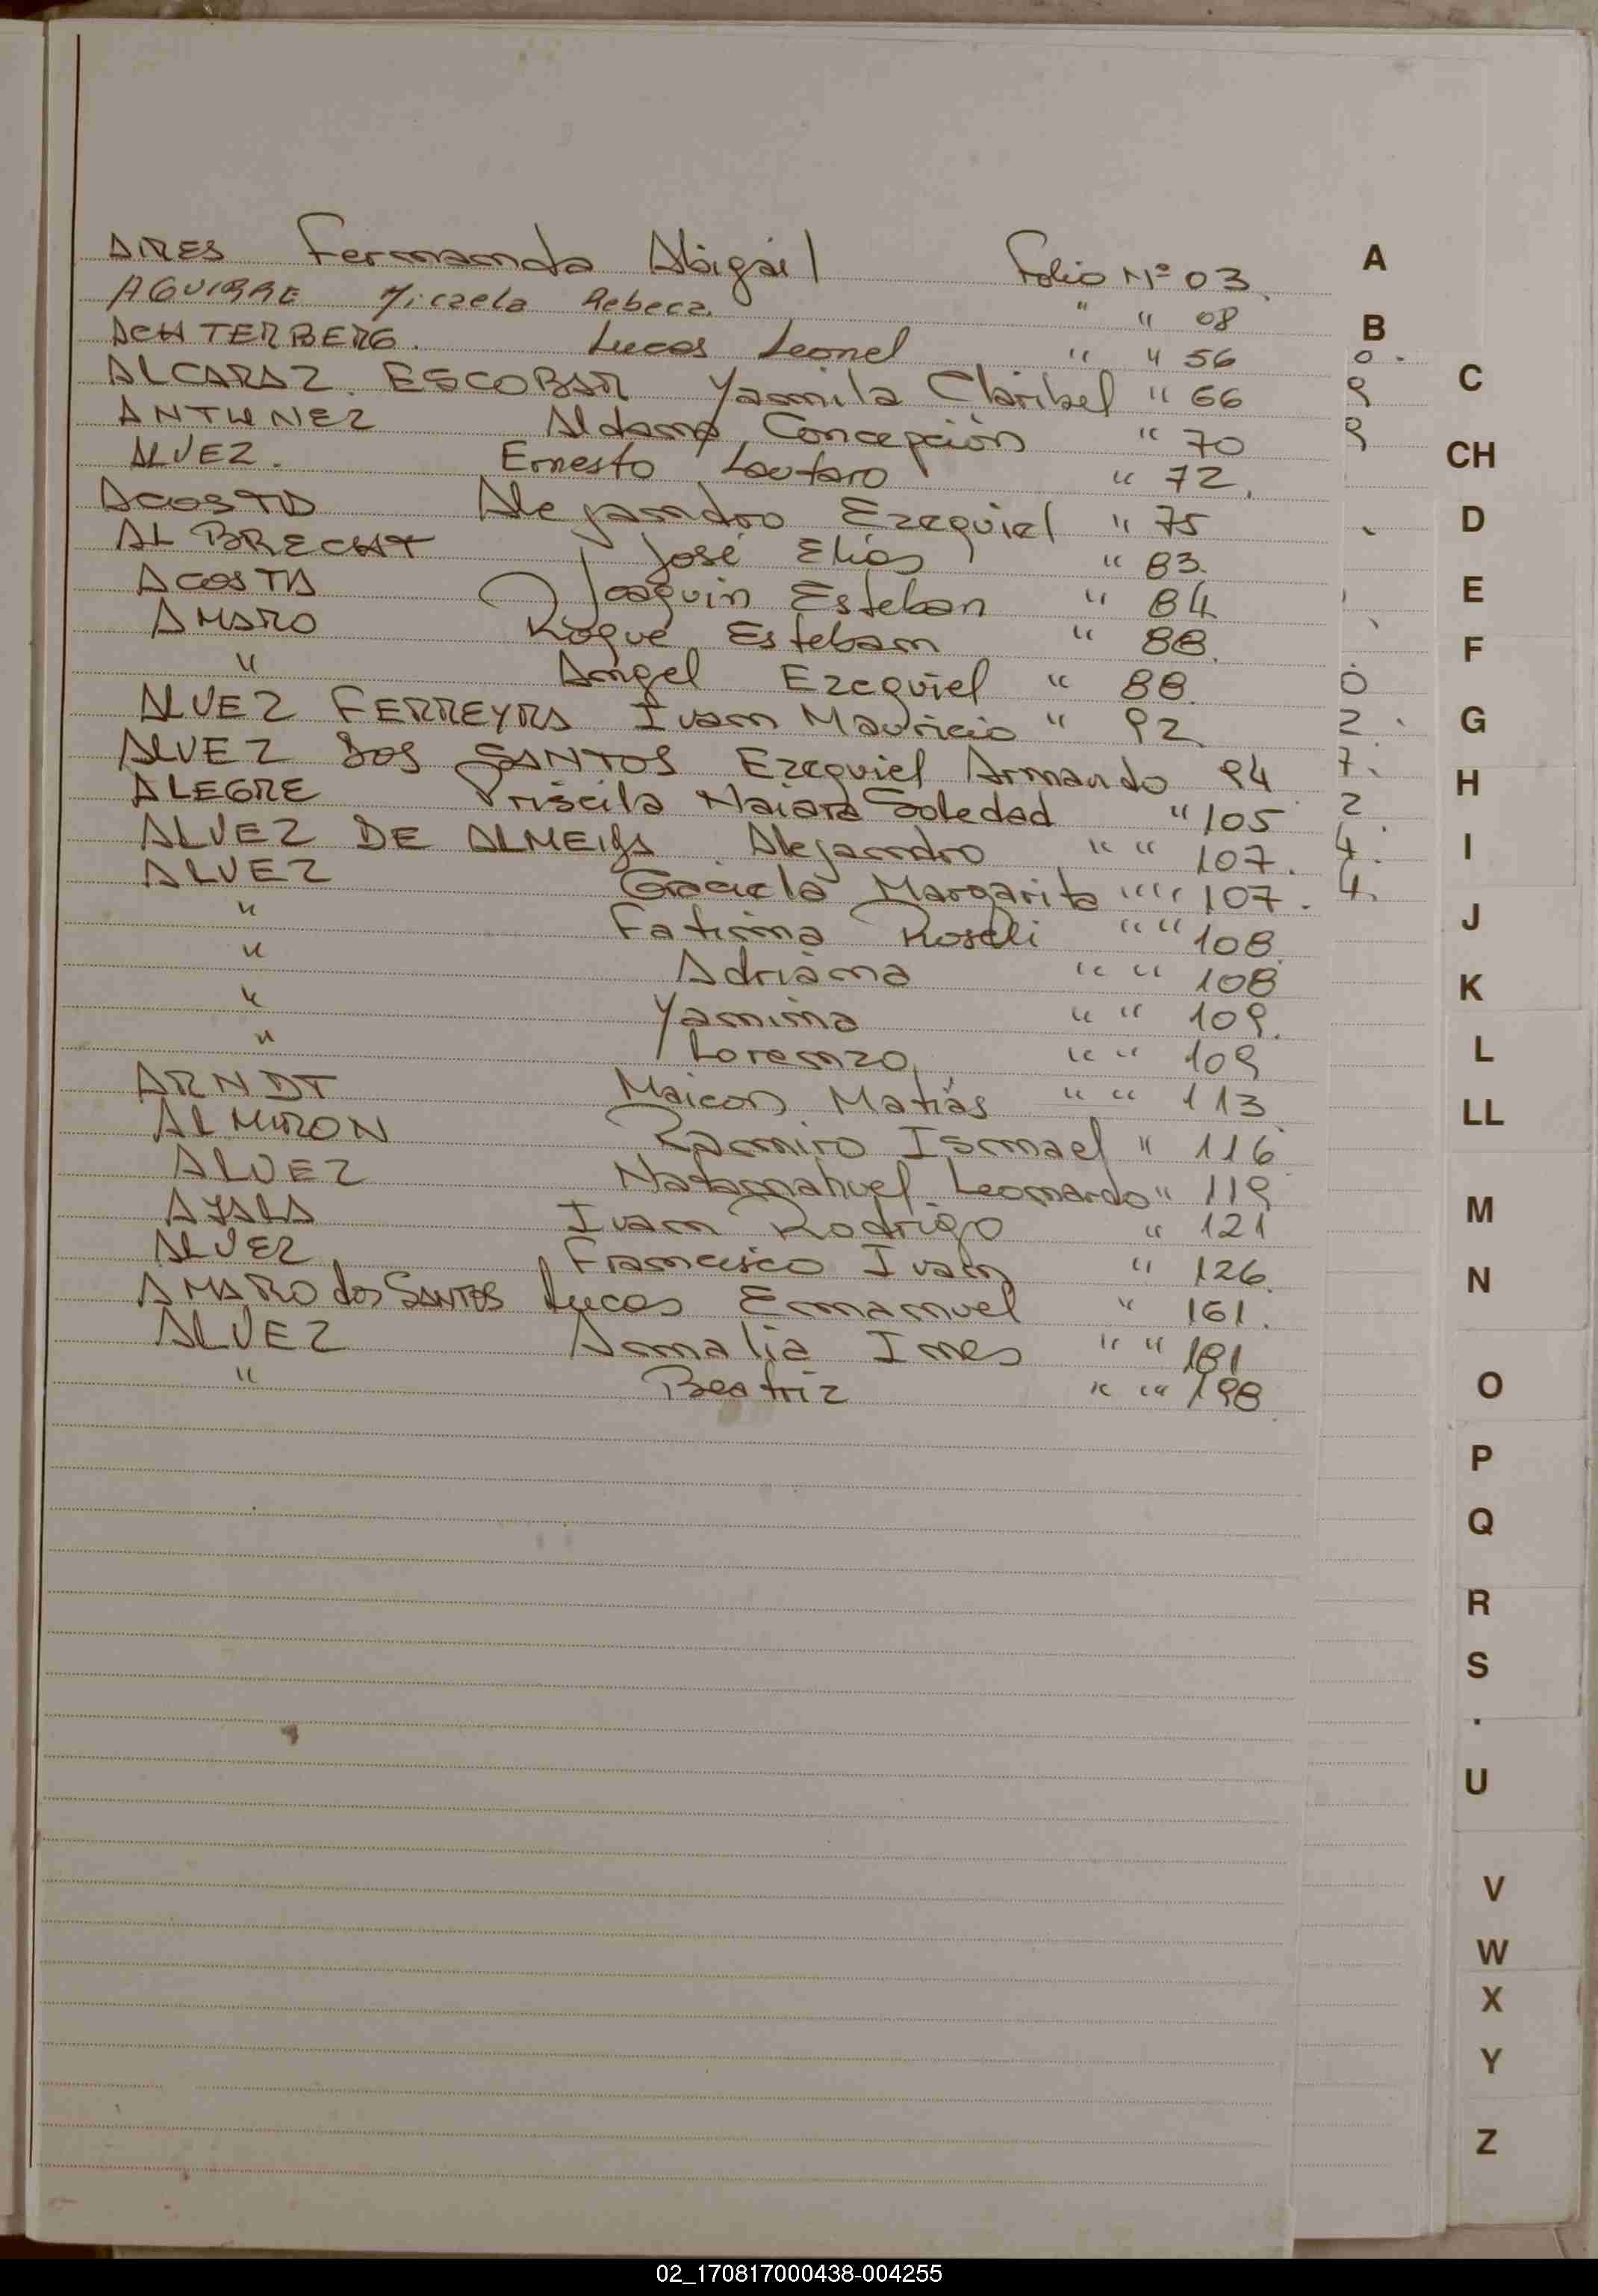 AIRES Fernanda Abigail Folio Nº 03.
AGUIRRE Micaela Rebeca. " " 08
ACHTERBERG. Lucas Leonel " " 56
ALCARAZ ESCOBAR Yamila Claribel " 66
ANTUNEZ Aldana Concepción " 70
ALVEZ. Ernesto Lautaro " 72.
ACOSTA Alejandro Ezequiel " 75
ALBRECHT José Elías " 83.
ACOSTA Joaquin Esteban " 84
AMARO Roque Esteban " 88.
" Angel Ezequiel " 88.
ALVEZ FERREYRA Ivan Mauricio " 92
ALVEZ DOS SANTOS Ezequiel Armando 94
ALEGRE Priscila Naiara Soledad " 105
ALVEZ DE ALMEIDA. Alejandro " " 107.
ALVEZ Graciela Margarita " " 107.
" Fatima Roseli " " 108
" Adriana " " 108
" Yanina " " 109.
" Lorenzo " " 109
ARNDT Maicon Matías " " 113
ALMIRON Ramiro Ismael " 116
ALVEZ Natanahuel Leonardo " 119
AYALA Ivan Rodrigo " 121
ALVEZ Francisco Ivan " 126.
AMARO dos SANTOS Lucas Emanuel " 161.
ALVEZ Annalia Ines " " 181
" Beatriz " " 198
A
B
C
CH
D
E
F
G
H
I
J
K
L
LL
M
N
O
P
Q
R
S
U
V
W
X
Y
Z
02_170817000438-004255